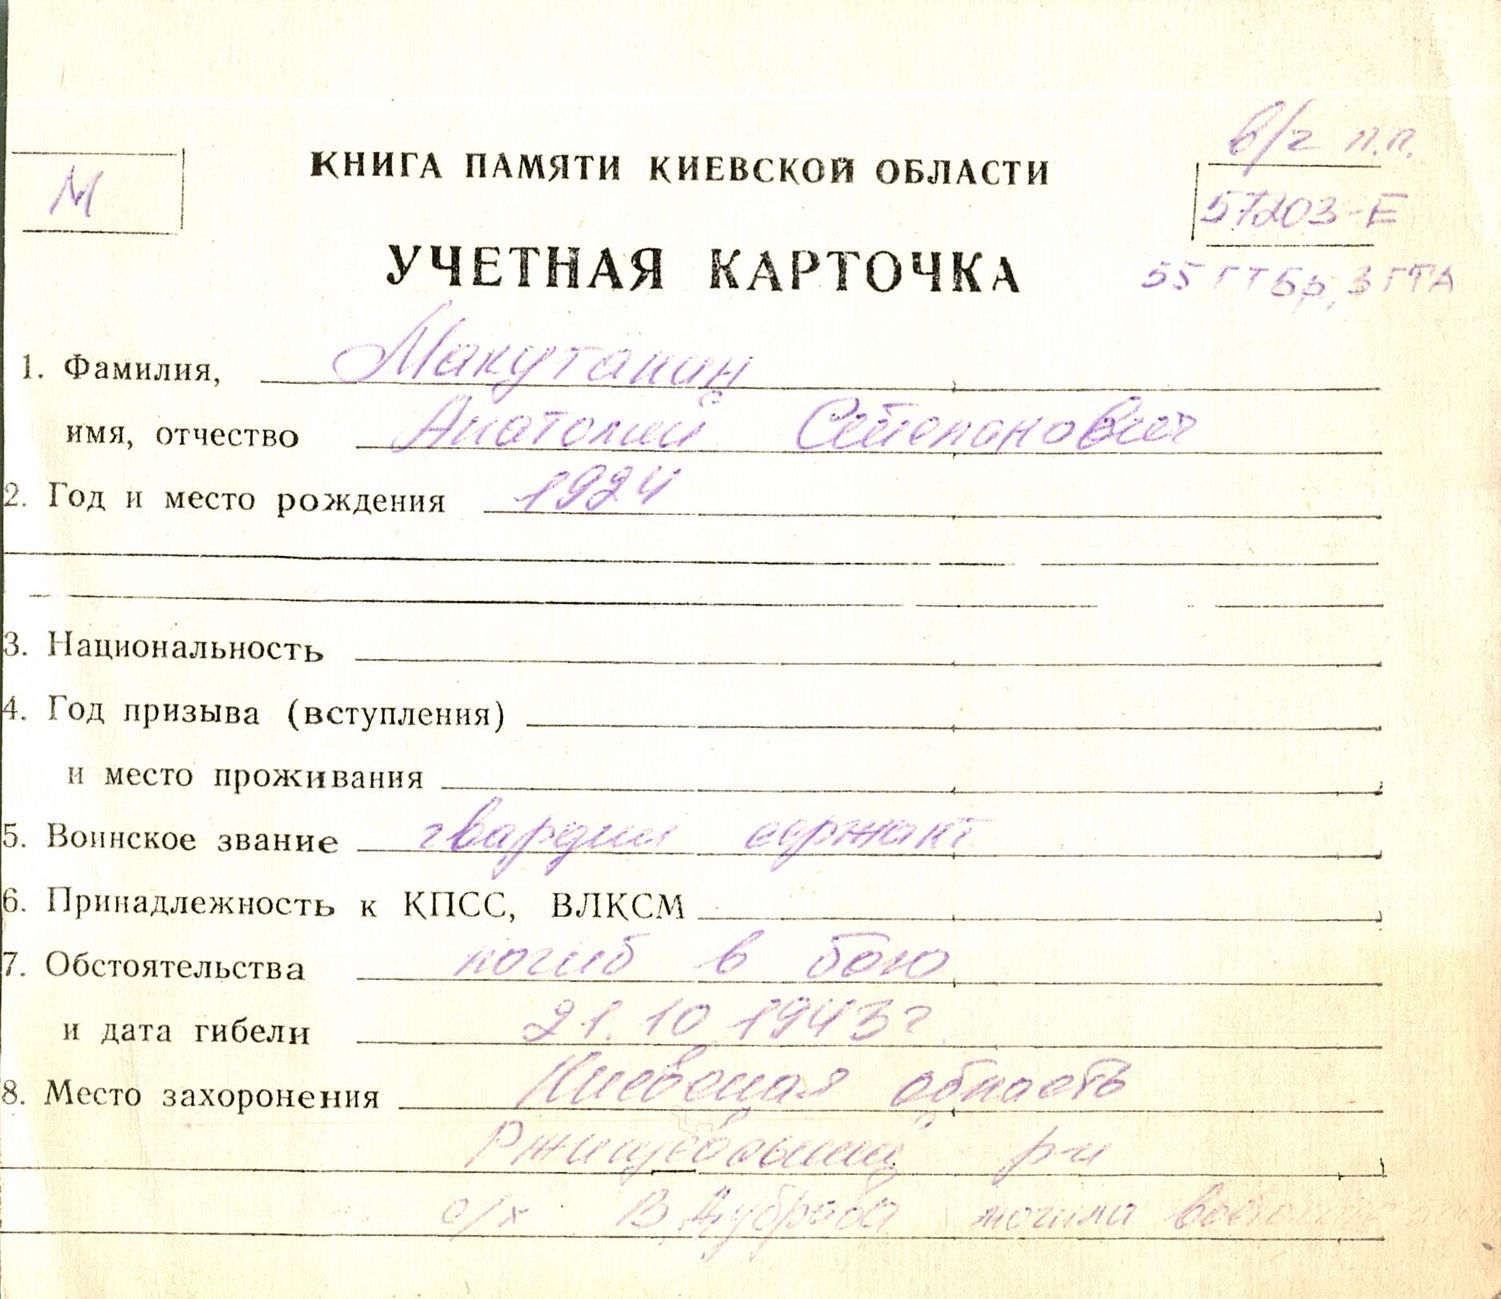 в/ч п.п.
М
КНИГА ПАМЯТИ КИЕВСКОЙ ОБЛАСТИ
57203-Е
УЧЕТНАЯ КАРТОЧКА
55 ГТБр, 3 ГТА
1. Фамилия,
имя, отчество Анатолий Степанович
2. Год и место рождения 1924
3. Национальность
4. Год призыва (вступления)
и место проживания
5. Воинское звание гвардии сержант
6. Принадлежность к КПСС, ВЛКСМ
7. Обстоятельства погиб в бою
и дата гибели 21.10.1943г
8. Место захоронения Киевская область
Ржищевский р-н
В Дубрава могила